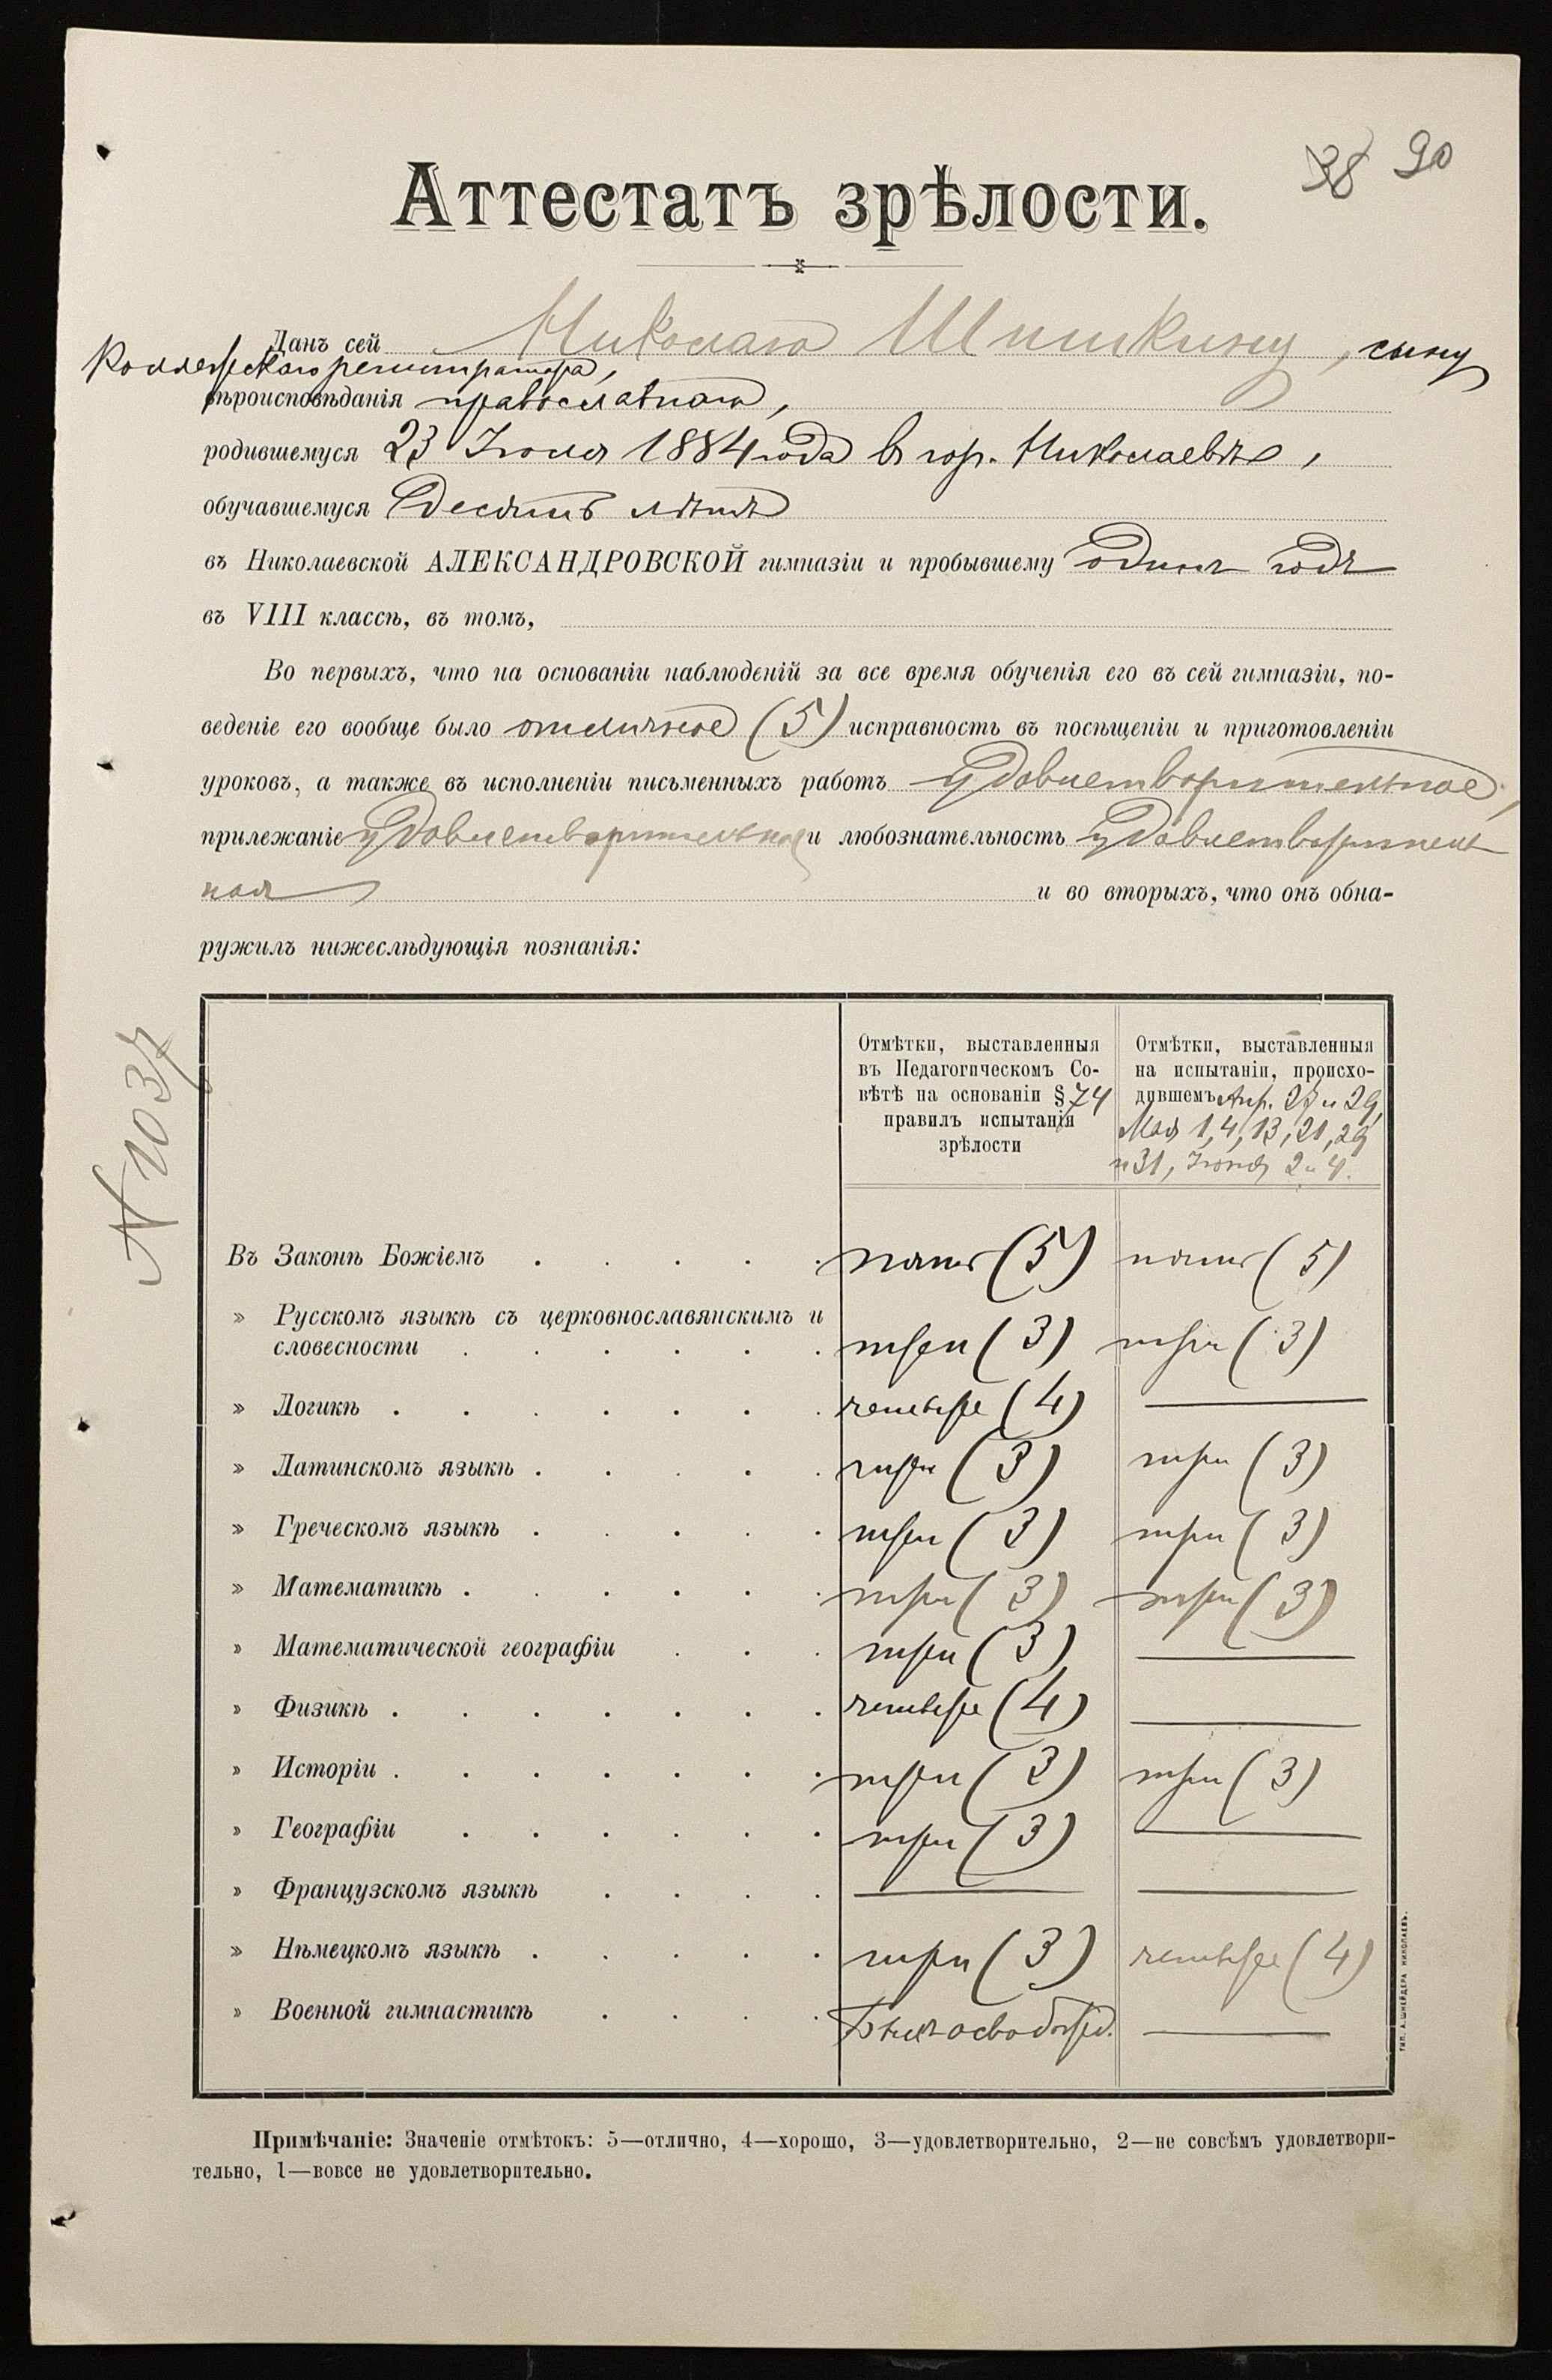 38 90
Аттестатъ зрѣлости.
Данъ сей Николаю Шишкину, сыну
Коллежскаго регистратора,
вѣроисповѣданія православнаго,
родившемуся 23 Іюля 1884 года въ гор. Николаевѣ,
обучавшемуся десять лѣтъ
въ Николаевской АЛЕКСАНДРОВСКОЙ гимназіи и пробывшему одинъ годъ
въ VIII классѣ, въ томъ,
Во первыхъ, что на основаніи наблюденій за все время обученія его въ сей гимназіи, по-
веденіе его вообще было отличное (5) исправность въ посѣщеніи и приготовленіи
уроковъ, а также въ исполненіи письменныхъ работъ удовлетворительное,
прилежаніе удовлетворительное и любознательность удовлетворитель
ная и во вторыхъ, что онъ обна-
ружилъ нижеслѣдующія познанія:
N 1037
Отмѣтки, выставленныя въ Педагогическомъ Со-вѣтѣ на основаніи § 74 правилъ испытанія зрѣлости
Отмѣтки, выставленныя на испытаніи, происхо-дившемъ Апр. 27 и 29, Мая 1, 4, 13, 21, 29 и 31, Іюня 2 и 4.
Въ Законѣ Божіемъ . . . . . пять (5) пять (5)
» Русскомъ языкѣ съ церковнославянскимъ и
словесности . . . . . . три (3) три (3)
» Логикѣ . . . . . . . четыре (4) —
» Латинскомъ языкѣ . . . . . три (3) три (3)
» Греческомъ языкѣ . . . . . три (3) три (3)
» Математикѣ . . . . . . три (3) три (3)
» Математической географіи . . . три (3) —
» Физикѣ . . . . . . . четыре (4) —
» Исторіи . . . . . . . три (3) три (3)
» Географіи . . . . . . три (3) —
» Французскомъ языкѣ . . . . — —
» Нѣмецкомъ языкѣ . . . . . три (3) четыре (4)
» Военной гимнастикѣ . . . . Былъ освобожд. —
ТИП. А. ШНЕЙДЕРА НИКОЛАЕВЪ.
Примѣчаніе: Значеніе отмѣтокъ: 5—отлично, 4—хорошо, 3—удовлетворительно, 2—не совсѣмъ удовлетвори-
тельно, 1—вовсе не удовлетворительно.